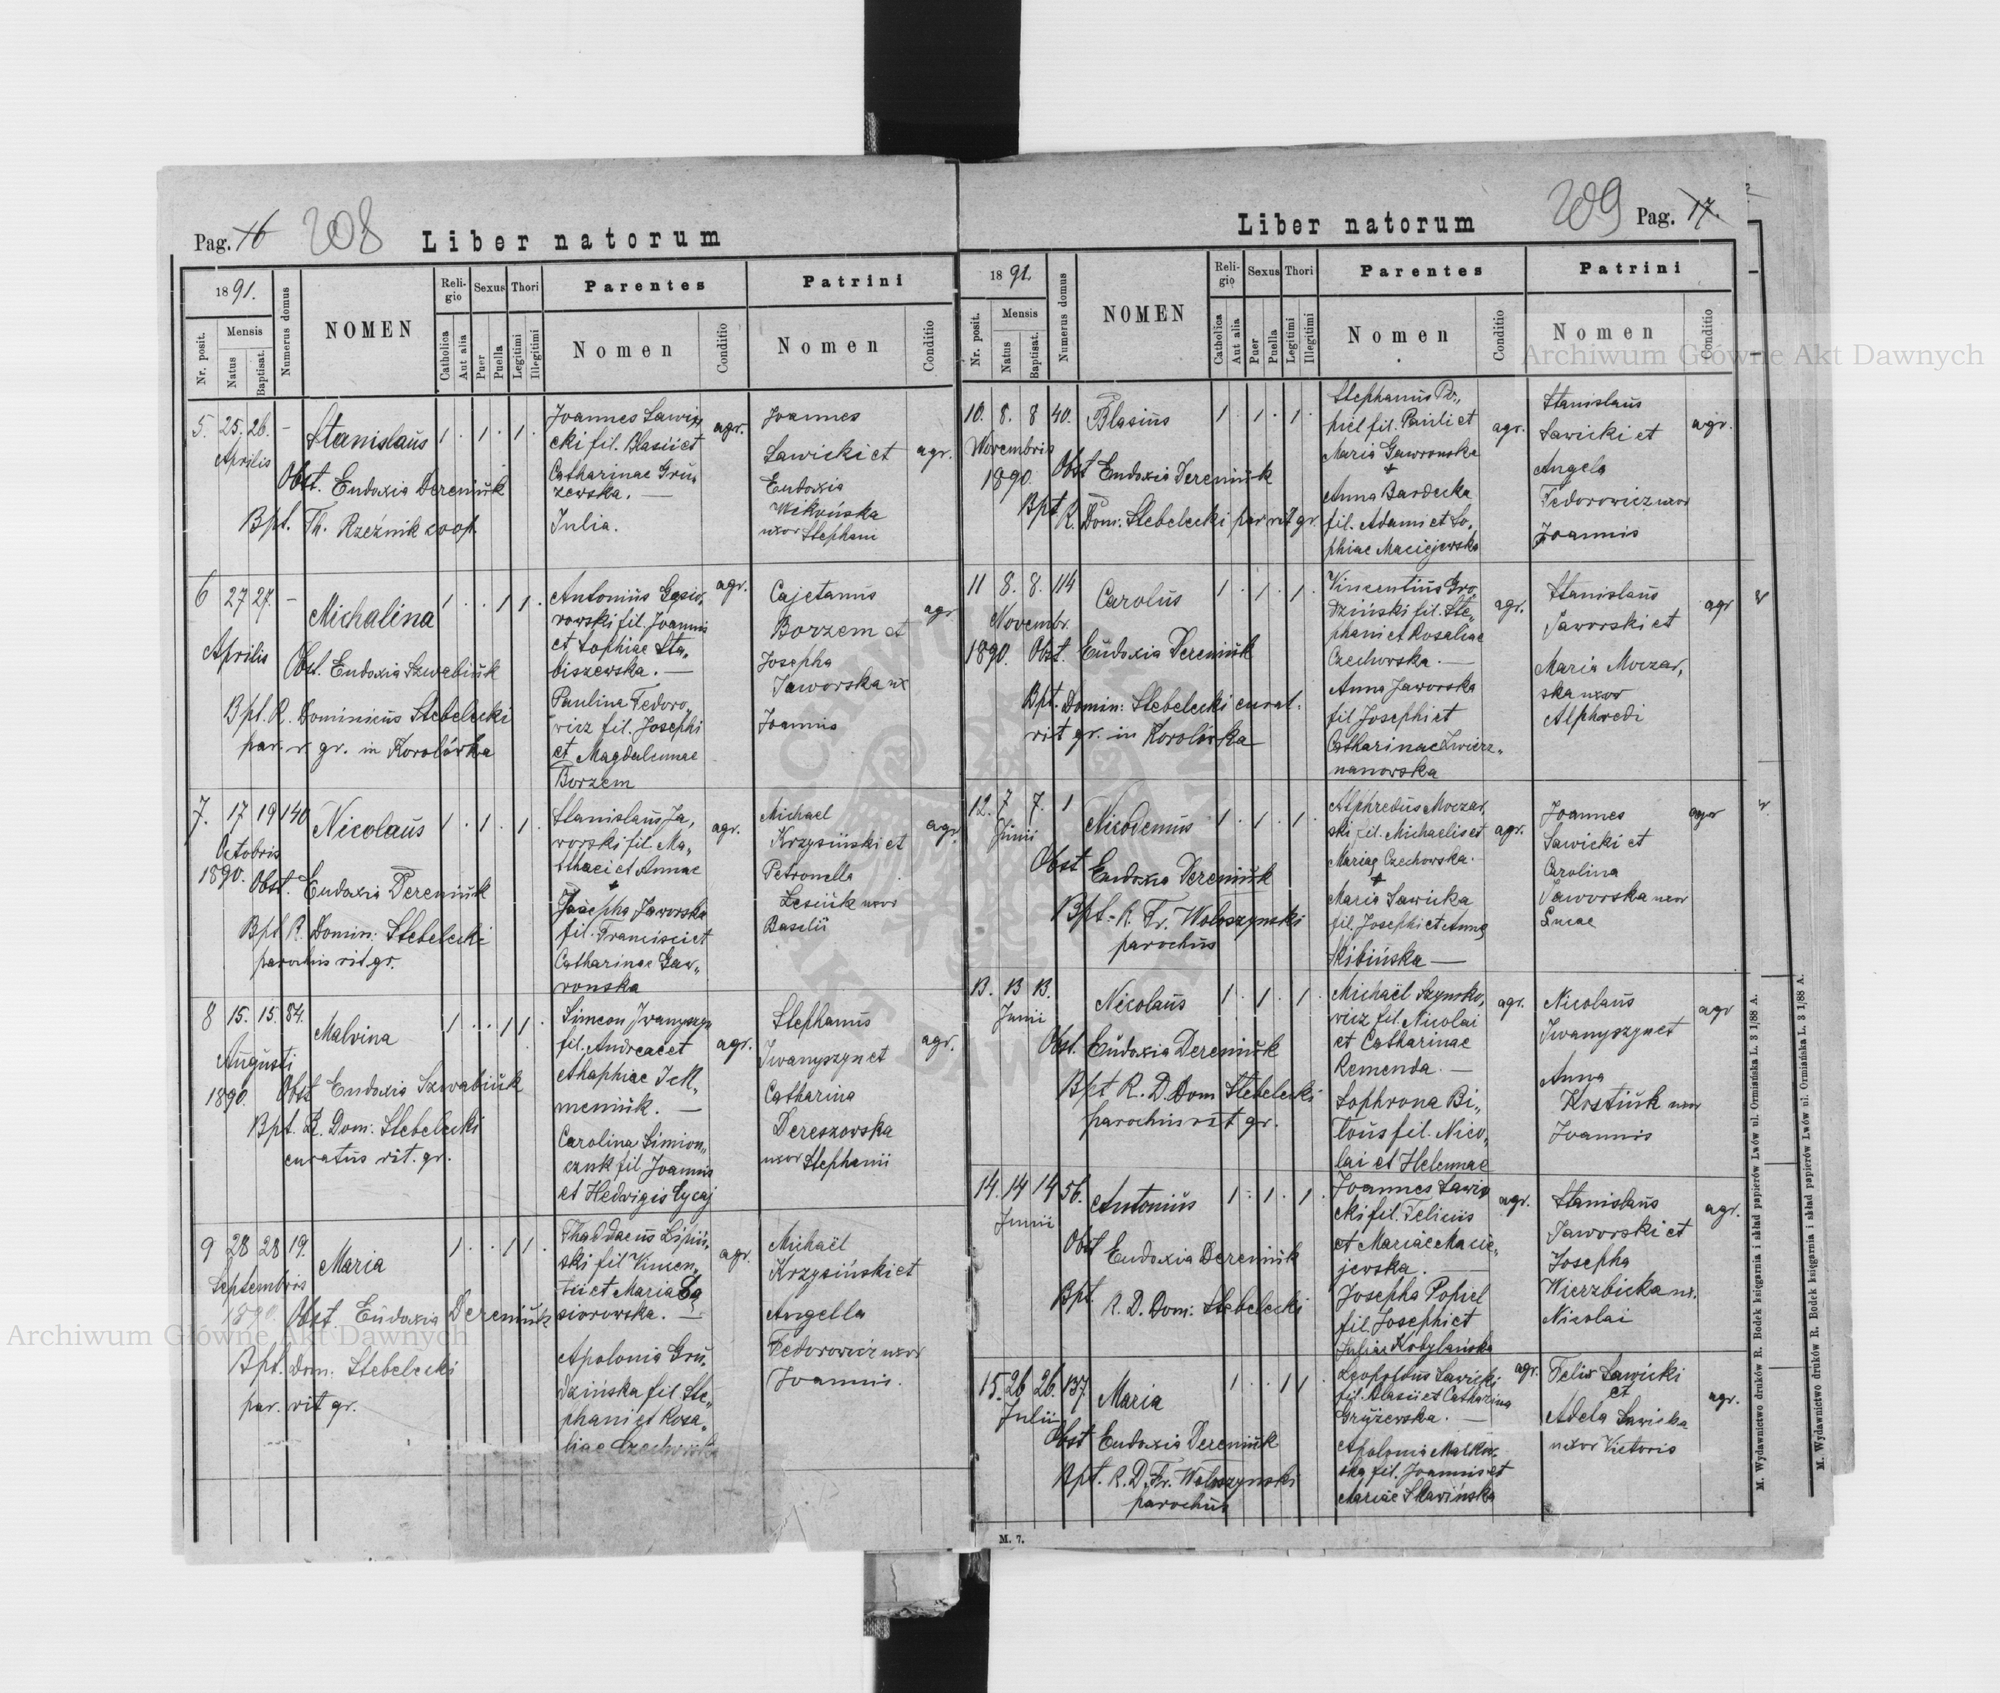 Pag. 16 208 Liber natorum
1891. Numerus domus NOMEN Religio Sexus Thori Parentes Patrini
Nr. posit. Mensis Natus Baptisat. Catholica Aut alia Puer Puella Legitimi Illegitimi Nomen Conditio Nomen Conditio
5. 25. 26. - Stanislaus 1 . 1 . 1 .
Aprilis
Obst. Eudoxia Dereniuk
Bpt. Th. Rzeźnik coop.
Joannes Sawic
cki fil. Blasii et
Catharinae Gru,
zewska. —
Julia.
agr.
Joannes
Sawicki et
Eudoxia
uxor Stephani
agr.
6 27 27. - Michalina 1 . . 1 1 .
Aprilis
Obst. Eudoxia Szwabiuk
Bpt. R. Dominicus Stebelecki
par. r. gr. in Korolówka
Antonius Gąsio,
rowski fil. Joannis
et Sophiae Sta,
biszewska. —
Paulina Fedoro,
wicz fil. Josephi
et Magdalenae
Borzem
agr.
Cajetanus
Borzem et
Josepha
Jaworska ux
Joannis
agr
7. 17 19 140 Nicolaus 1 . 1 . 1 .
Octobris
1890. Obst. Eudoxia Dereniuk
Bpt R. Domin: Stebelecki
parochus rit. gr.
Stanislaus Ja,
worski fil. Ma,
thaei et Annae
+
Josepha Jaworska
fil. Francisci et
Catharinae Gaw,,
ronska
agr.
Michael
Krzysiński et
Petronella
Lesiuk uxor
Basilii
agr.
8 15. 15. 84. Malvina 1 . . 1 1 .
Augusti
1890. Obst Eudoxia Szwabiuk
Bpt. R. Dom: Stebelecki
curatus rit. gr.
Simeon Iwanyszyn
fil. Andreae et
meniuk. —
Carolina Simion,,
czuk fil. Joannis
et Hedvigis
agr.
Stephanus
Iwanyszyn et
Catharina
Dereszowska
uxor Stephanii
agr.
9 28 28 19. Maria 1 . . 1 1 .
Septembris
1890. Obst. Eudoxia Dereniuk
Bpt. Dom: Stebelecki
par. rit gr.
Thaddaeus Lipiń,
ski fil Vincen,
tii et Maria Gą
siorowska. —
Apolonia Gru,
dzińska fil. Ste,
phani et Rosa,
liae Czechowska
agr.
Michaël
Krzysiński et
Angella
Fedorowicz uxor
Joannis.
Liber natorum 209 Pag. 17.
1891. Numerus domus NOMEN Religio Sexus Thori Parentes Patrini
Nr. posit. Mensis Natus Baptisat. Catholica Aut alia Puer Puella Legitimi Illegitimi Nomen Conditio Nomen Conditio
10. 8. 8 40. Blasius 1 . 1 . 1 .
Novembris
1890. Obst Eudoxia Dereniuk
Bpt R. Dom: Stebelecki par rit gr.
Stephanus Po,,
piel fil. Pauli et
Maria Gawronska
+
Anna Bardecka
fil. Adami et So,
phiae Maciejewska
agr.
Stanislaus
Sawicki et
Angela
Fedorowicz uxor
Joannis
agr.
11 8. 8. 114 Carolus 1 . 1 . 1 .
Novembr.
1890. Obst. Eudoxia Dereniuk
Bpt. Domin: Stebelecki curat.
rit gr. in Korolówka
Vincentius Gro,
dziński fil. Ste,
phani et Rosaliae
Czechowska. —
Anna Jaworska
fil Josephi et
nanowska
agr.
Stanislaus
Jaworski et
Maria Moczar,
ska uxor
Alphredi
agr
12. 7 7. 1 Nicodemus 1 . 1 . 1 .
Junii
Obst Eudoxia Dereniuk
Bpt. R. Fr. Wołoszynski
parochus
Alphredus Moczar,
ski fil. Michaelis et
Mariae Czechowska.
+
Maria Sawicka
fil. Josephi et Anna
Skibińska —
agr.
Joannes
Sawicki et
Carolina
Jaworska uxor
Lucae
agr
13. 13 13. Nicolaus 1 . 1 . 1 .
Junii
Obst. Eudoxia Dereniuk
Bpt R. D. Dom Stebelecki
parochus rit gr.
Michaël Szymko,
wicz fil. Nicolai
et Catharinae
Remenda. —
Sophrona Bi,,
lous fil. Nico,
lai et Helennae
agr.
Nicolaus
Iwanyszyn et
Anna
Kostiuk uxor
Joannis
agr
14. 14 14 56. Antonius 1 . 1 . 1 .
Junii
Obst Eudoxia Dereniuk
Bpt. R. D. Dom: Stebelecki
Joannes Sawic
cki fil. Felicis
et Mariae Macie,
jewska. —
Josepha Popiel
fil. Josephi et
Juliae Kobylańska
agr.
Stanislaus
Jaworski et
Josepha
Wierzbicka ux.
Nicolai
agr.
15. 26 26. 137 Maria 1 . . 1 1 .
Julii
Obst Eudoxia Dereniuk
Bpt. R. D. Fr. Wołoszynski
parochus
Leopoldus Sawicki
fil. Blasii et Catharina
Gryżewska. —
Apolonia Malkow,
ska fil. Joannis et
Mariae Slawińska
agr.
Felix Sawicki
et
Adela Sawicka
uxor Victoris
agr.
M. 7.
M. Wydawnictwo druków R. Bodek księgarnia i skład papierów Lwów ul. Ormiańska L. 3 1/88 A.
M. Wydawnictwo druków R. Bodek księgarnia i skład papierów Lwów ul. Ormiańska L. 3 1/88 A.
Archiwum Główne Akt Dawnych
Archiwum Główne Akt Dawnych